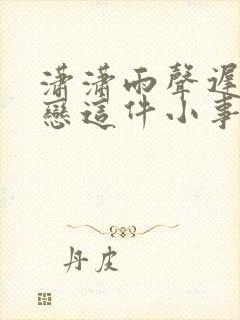 瀟瀟雨聲遲
戀這件小事
丹皮